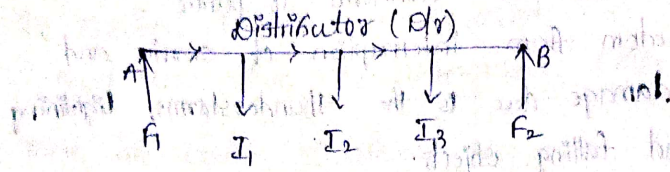 Distributor (D/r)
A B
F1 I1 I2 I3 F2